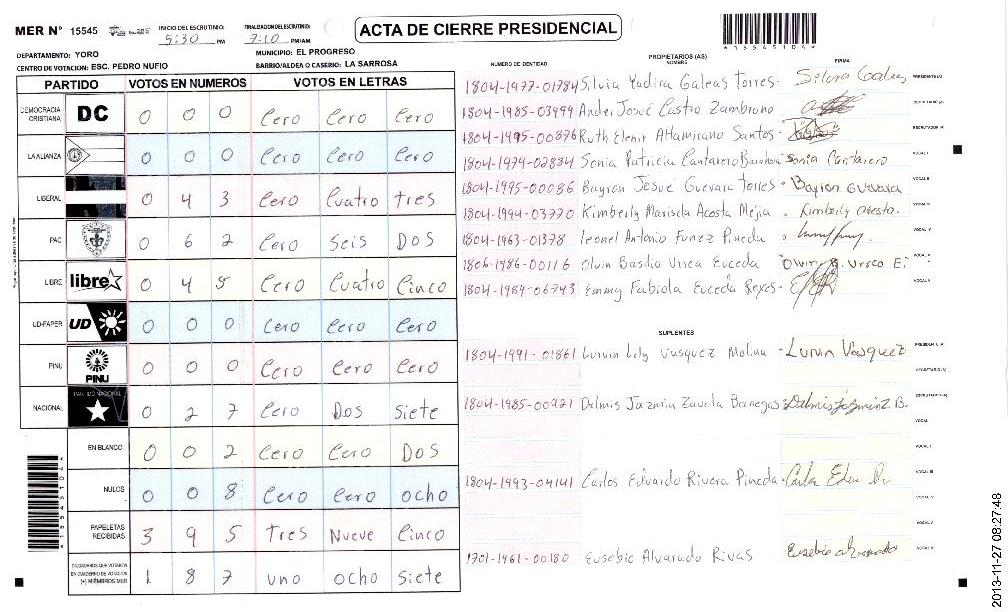 MER Nº 15545 INICIO DEL ESCRUTINIO: 5:30 PM FINALIZACION DEL ESCRUTINIO: 7:10 PM/AM
ACTA DE CIERRE PRESIDENCIAL
DEPARTAMENTO: YORO MUNICIPIO: EL PROGRESO
CENTRO DE VOTACION: ESC. PEDRO NUFIO BARRIO/ALDEA O CASERIO: LA SARROSA
PARTIDO VOTOS EN NUMEROS VOTOS EN LETRAS
DEMOCRACIA CRISTIANA DC 0 0 0 Cero Cero Cero
LA ALIANZA 0 0 0 Cero Cero Cero
LIBERAL 0 4 3 Cero Cuatro tres
PAC 0 6 2 Cero Seis DOS
LIBRE libre 0 4 5 Cero Cuatro Cinco
UD-FAPER UD 0 0 0 Cero Cero Cero
PINU PINU 0 0 0 Cero Cero Cero
NACIONAL PARTIDO NACIONAL 0 2 7 Cero DOS Siete
EN BLANCO 0 0 2 Cero Cero DOS
NULOS 0 0 8 Cero Cero ocho
PAPELETAS RECIBIDAS 3 9 5 Tres Nueve Cinco
CIUDADANOS QUE VOTARON EN CUADERNO DE VOTACION (+) MIEMBROS MER 1 8 7 uno ocho Siete
*15545104*
NUMERO DE IDENTIDAD PROPIETARIOS (AS) NOMBRE FIRMA
1804-1977-01784 Silvia Yadira Galeas Torres Silvia Galeas PRESIDENTE(A)
1804-1985-03994 Ander Josué Castro Zambrano SECRETARIO (A)
1804-1995-00876 Ruth Elenit Altamirano Santos ESCRUTADOR (A)
1804-1974-02884 Sonia Patricia Cantarero Barahona Sonia Cantarero VOCAL I
1804-1995-00086 Bayron Josué Guevara Torres Bayron Guevara VOCAL II
1804-1994-03770 Kimberly Marisela Acosta Mejia Kimberly Acosta. VOCAL III
1804-1963-01378 Leonel Antonio Funez Pineda VOCAL IV
1806-1986-00116 Olvin Basilio Urrea Euceda VOCAL V
1804-1989-06743 Emmy Fabiola Euceda Reyes
SUPLENTES
1804-1991-01861 Lurvin Lily Vasquez Molina Lurvin Vasquez PRESIDENTE (A)
SECRETARIO (A)
1804-1985-00921 Delmis Jazmin Zavala Banegas Delmis Jazmin Z B. ESCRUTADOR (A)
VOCAL
VOCAL II
1804-1993-04141 Carlos Eduardo Rivera Pineda VOCAL III
VOCAL IV
VOCAL V
1701-1961-00180 Eusebio Alvarado Rivas Eusebio Alvarado
2013-11-27 08:27:48